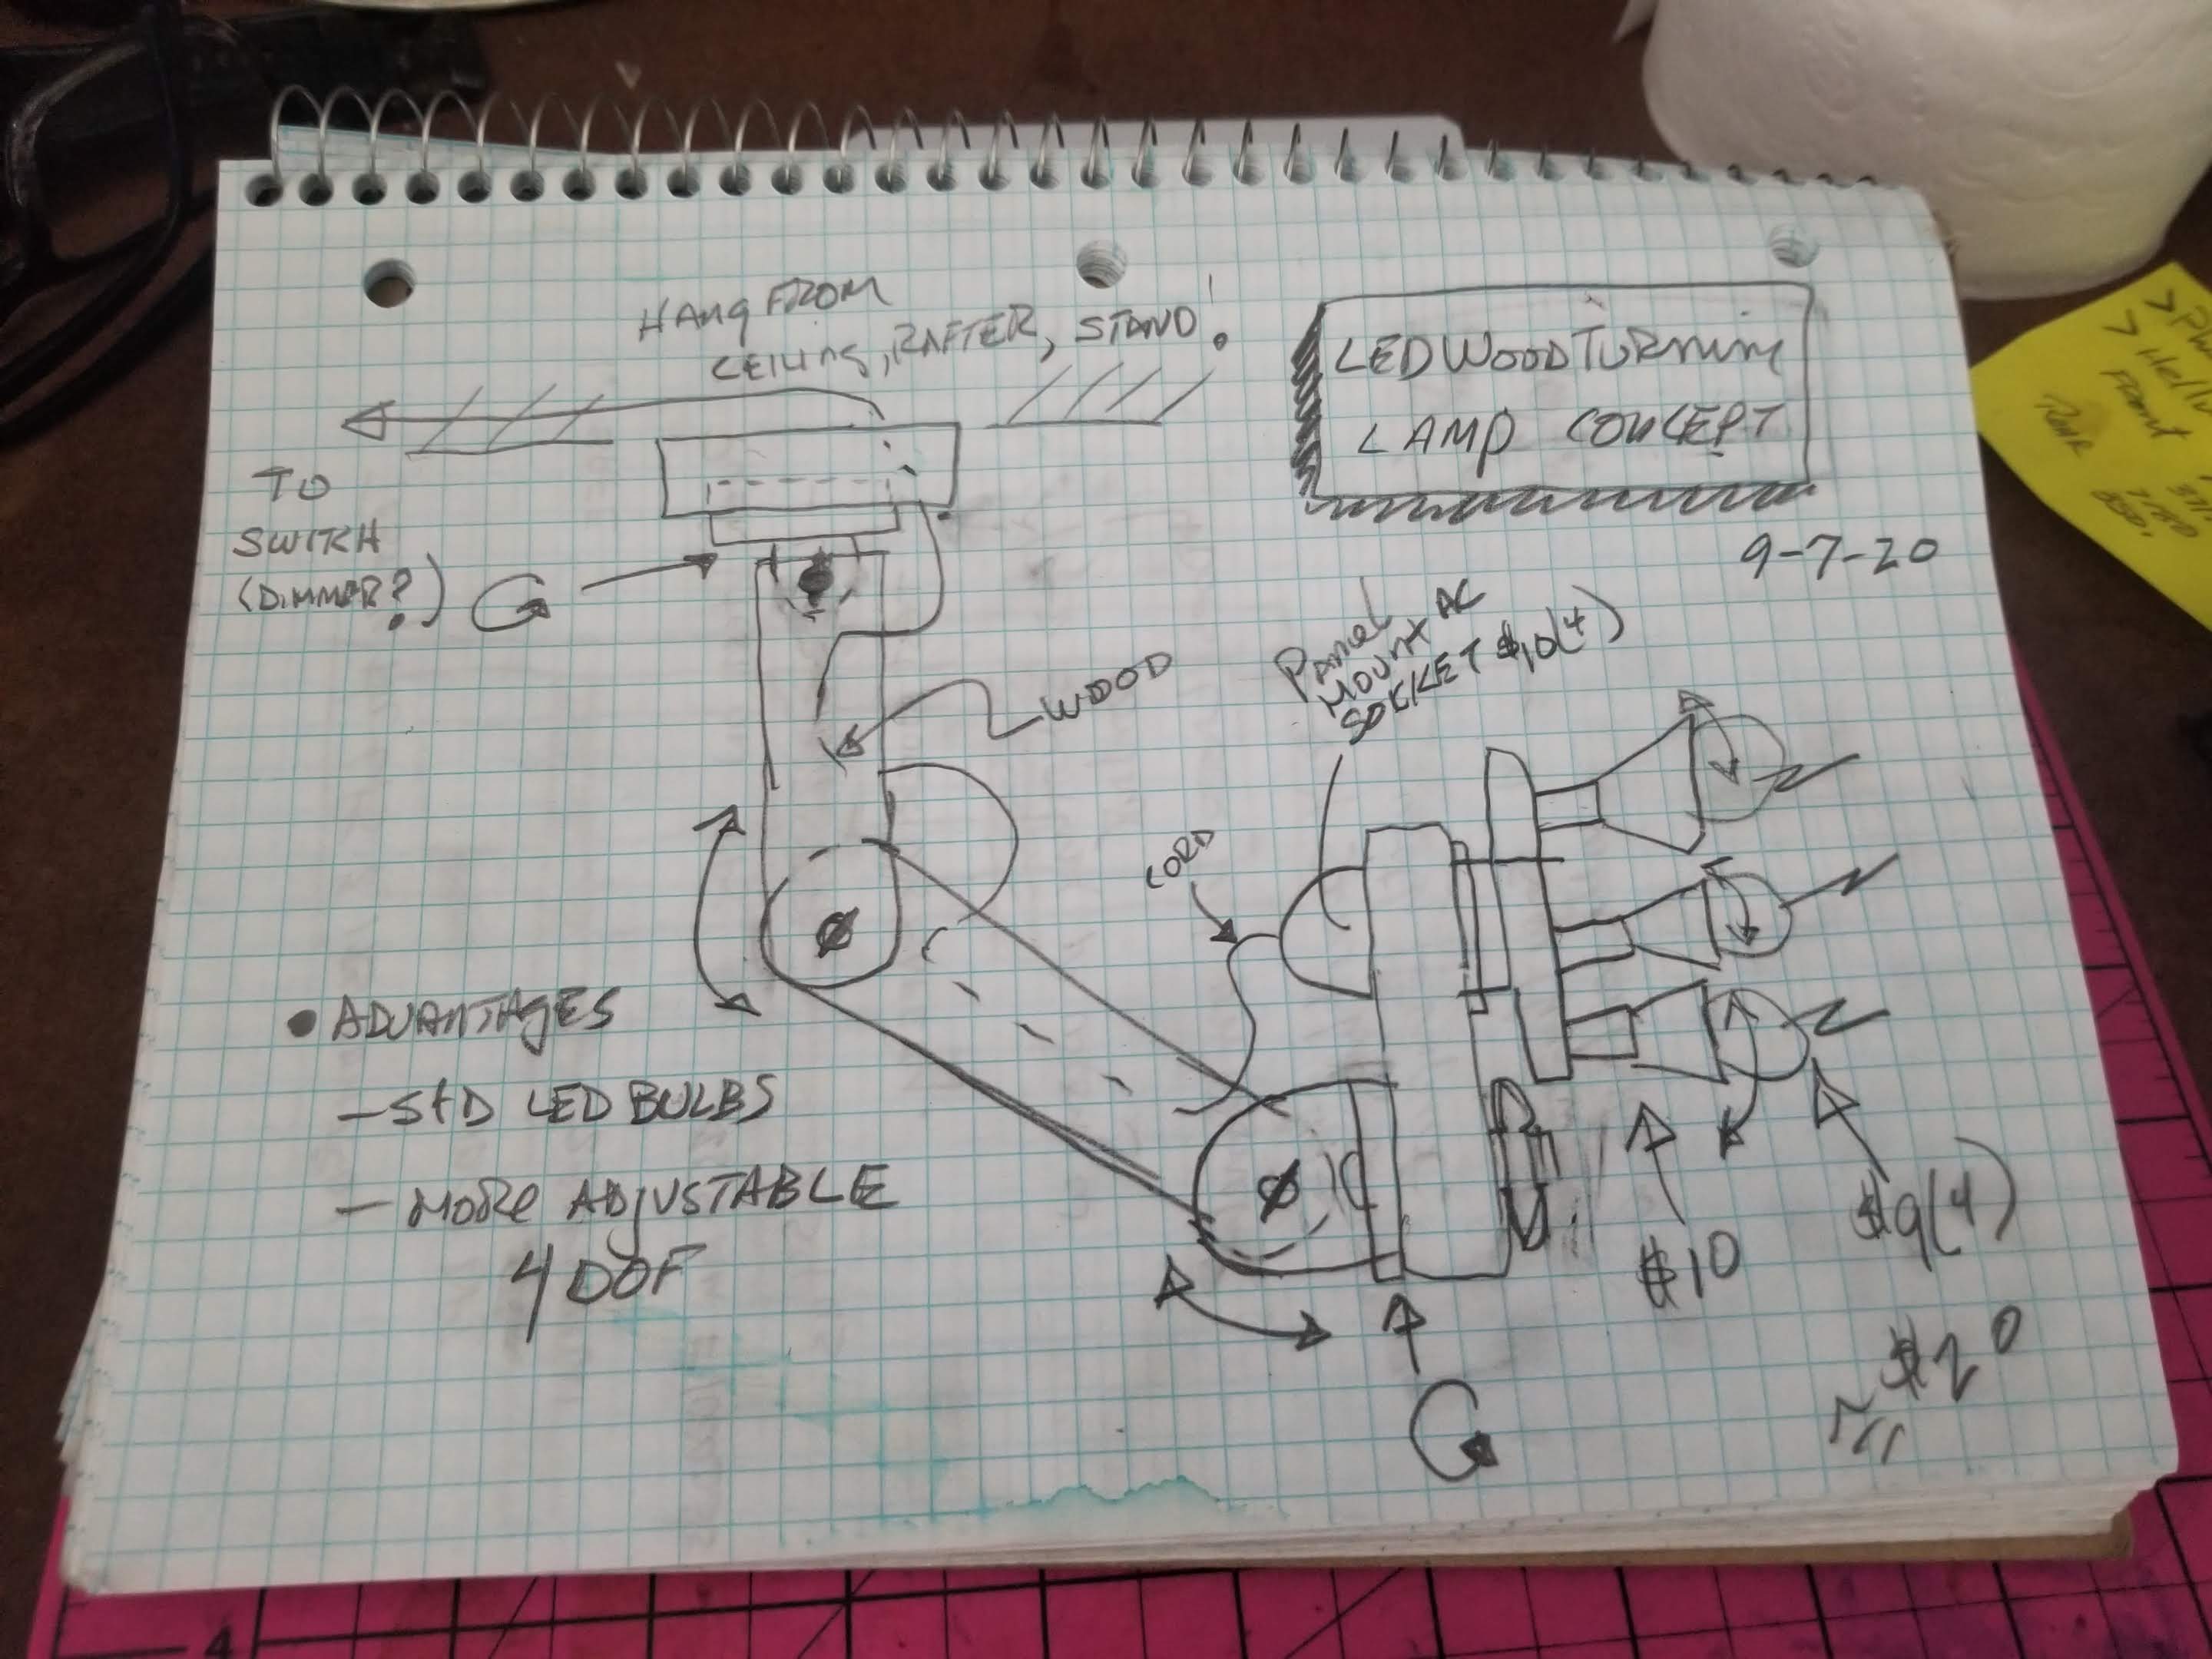 HANG FROM
CEILING, RAFTER, STAND!
LED WOODTURNING
LAMP CONCEPT
9-7-20
TO
SWITCH
(DIMMER?)
WOOD
PANEL
MOUNT AC
SOCKET $10(4)
CORD
• ADVANTAGES
- STD LED BULBS
- MORE ADJUSTABLE
4 DOF
$10
$9(4)
$20
Front
4